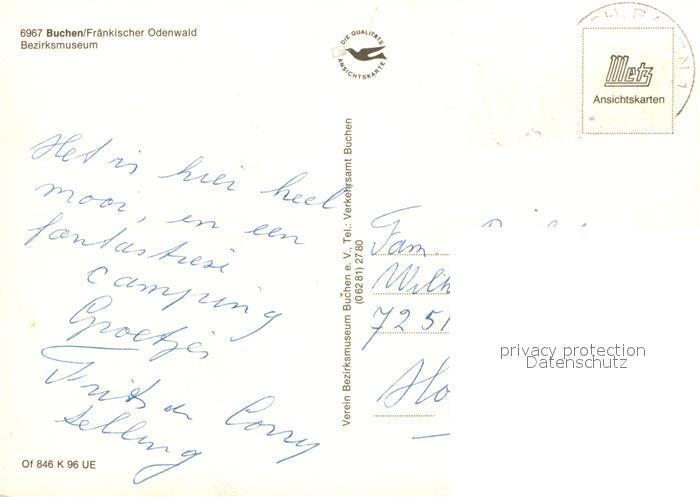 6967 Buchen/Fränkischer Odenwald
Bezirksmuseum
DIE QUALITÄTS
ANSICHTSKARTE
Metz
Ansichtskarten
Het is hier heel
mooi, en een
fantastiese
camping
Groetjes
Frits en Corry
Selling
Of 846 K 96 UE
Verein Bezirksmuseum Buchen e. V., Tel.: Verkehrsamt Buchen
(0 62 81) 27 80
Fam.
Wilh
7251
Ho
privacy protection
Datenschutz